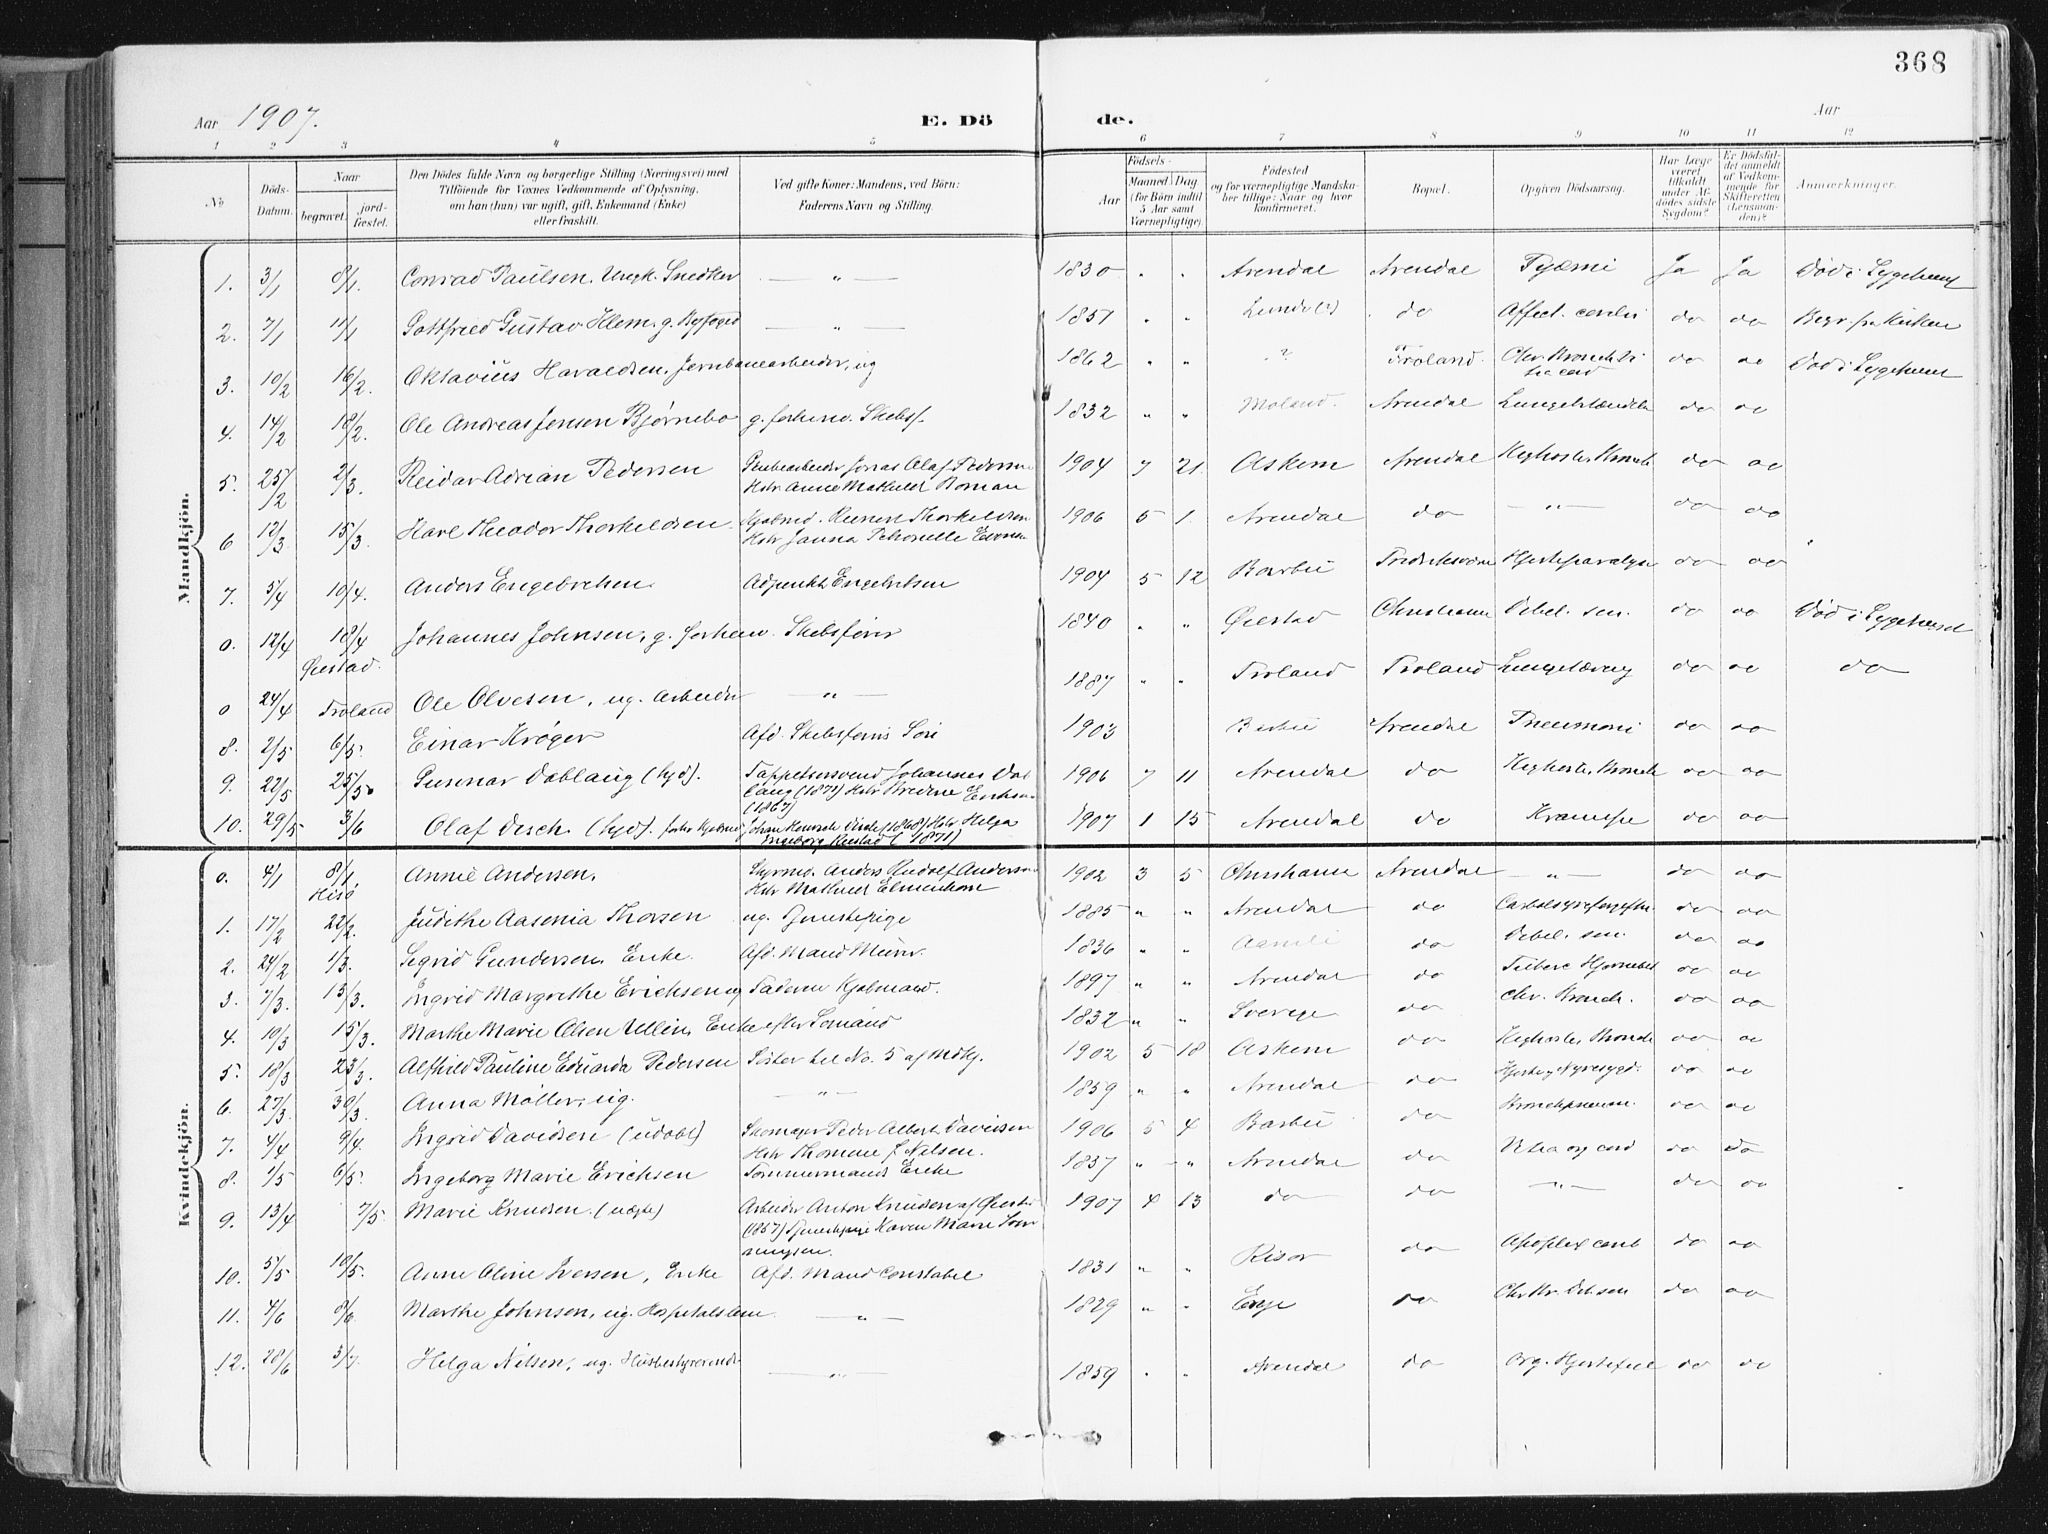 368
Aar 1907. E. Dö de. Aar
1 2 3 4 5 6 7 8 9 10 11 12
No
Döds-Datum.
Naar
begravet.
jord-fæstet.
Den Dödes fulde Navn og borgerlige Stilling (Næringsvei) med
Tilföiende for Voxnes Vedkommende af Oplysning,
om han (hun) var ugift, gift, Enkemand (Enke)
eller fraskilt.
Ved gifte Koner: Mandens, ved Börn:
Faderens Navn og Stilling.
Födsels-
Aar
Maaned Dag
(for Börn indtil
5 Aar samt
Værnepligtige).
Födested
og for værnepligtige Mandska-
ber tillige: Naar og hvor
konfirmeret.
Bopæl.
Opgiven Dödsaarsag.
Har Læge
været
tilkaldt
under Af-
dödes sidste
Sygdom?
Er Dödsfal-
det anmeldt
af Vedkom-
mende for
Skifteretten
(Lensman-
den)?
Anmærkninger.
Mandkjön.
1. 3/1 8/1. Conrad Paulsen. Ungk. Snedker — " — 1830 " " Arendal Arendal Pyæmi Ja Ja Död i Sygehuset
2. 7/1 11/1 Gottfried Gustav Klem. g. Byfoged — " — 1857 " " Lunde(?) do Affect. cordis do do Begr. fra Kirken
3. 10/2 16/2. Oktavius Haraldsen. Jernbanearbeider, ug 1862 " " ? Froland. Chr. Bronchit do do Död i Sygehuset
4. 14/2 18/2. Ole Andreas Jensen Bjørnebo g. forhenv. Skibsf. 1832 " " Moland. Arendal do do
5. 25/2 2/3. Reidar Adrian Pedersen Jonas Olaf Pedersen
Hstr Anne Mathilde Roman 1904 7 21. Askem Arendal Kighoste, Bronch do do
6 12/3 15/3. Karl Theodor Thorkildsen. Kjøbmd. Thorkildsen
Hstr Janna Petronelle 1906 5 1. Arendal do — " — do do
7. 5/4 10/4. Anders Engebretsen. Adjunkt Engebretsen 1904 5 12 Barbu Hjerteparalyse do do
0. 12/4 18/4 Johannes Johnsen, g. forhenv. Skibsfører 1840 " " Øiestad Debel. sen. do do Död i Sygehuset
Øiestad.
0 24/4 Froland Ole Olvesen, ug. Arbeider — " — 1887 " " Froland Froland do do do
8. 2/5 6/5. Einar Krøger Afd. Skibsførers Søn 1903 Barbu Arendal Pneumoni do do
9. 22/5 25/5. Gunnar Dablaug (hjd). Johannes Dab
laug (1873) Hstr
(1867) 1906 7 11 Arendal do Kighoste, Bronch do do
10. 29/5 3/6 Olaf Disch. (hjd). Johan Disch (1868) Hstr Helga
Ingeborg (1871) 1907 1 15 Arendal do Krampe do do
Kvindekjön.
0. 4/1 8/1. Annie Andersen. Styrmd. Anders Rudolf Andersen
Hisö Hstr Mathilde Elmenhorst 1902 3 5 Christiania Arendal — " — do do
1. 17/2 22/2. Judithe Aasenia Thorsen ug. Tjenestepige 1885 " " Arendal do do do
2. 24/2 1/3. Sigrid Gundersen, Enke. Afd. Mand Murer. 1836 " " Aamli do Debel. sen. do do
3. 7/3. 13/3. Ingrid Margrethe Erichsen ug Faderen Kjøbmand. 1897 " " Arendal do do do
4. 10/3 15/3. Marthe Marie Olsen Ullin, Enke efter Sömand 1832 " " Sverige do Chr. Bronch. do do
5. 18/3 23/3. Alfhild Pauline Eduarda Pedersen Söster til No. 5 af Mdkj. 1902 5 18 Askem do Kighoste, Bronch do do
6. 27/3. 30/3. Anna Møller, ug. — " — 1859 " " Arendal do Hjerte, Nyresygd. do do
7. 4/4 9/4. Ingrid Davidsen (udöbt) Skomager Peder Albert Davidsen
Hstr Thomine f. Nilsen. 1906 5 4 Barbu do Bronchpneum. do do
8. 1/5 6/5. Ingeborg Marie Erichsen Tömmermands Enke 1837 " " Arendal do do do
9. 13/4 7/5. Marie Knudsen. (uægte) Arbeider Anton Knudsen af Øiestad
(1867) Tjenestepige Karen Marie 1907 4 13 do do — " — do do
10. 5/5 10/5. Anne Oline Iversen, Enke Afd. Mand Constabel 1831 " " Risör do Apoplex cereb do do
11. 4/6 8/6. Marthe Johnsen, ug. Hospitalslem — " — 1829 " " Evje do do do
12. 28/6 3/7. Helga Nilsen, ug. Husbestyrerinde — " — 1859 " " Arendal do Org. Hjertefeil do do